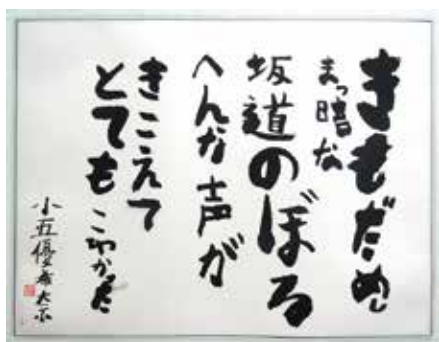 きもだめし
まっ暗な
坂道のぼる
へんな声が
きこえて
とてもこわかった
小五優希